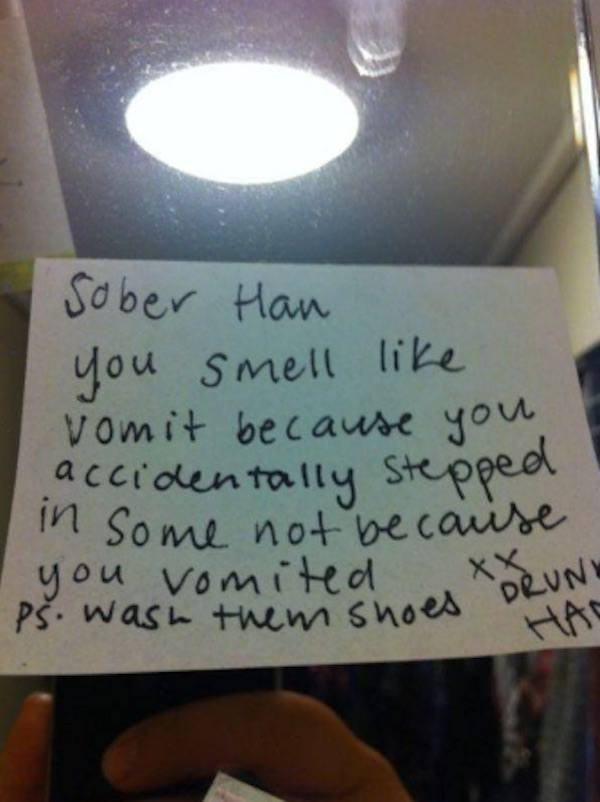 Sober Han
you smell like
vomit because you
accidentally stepped
in some not because
you vomited
PS. wash them shoes
xx
DRUNK
HAN